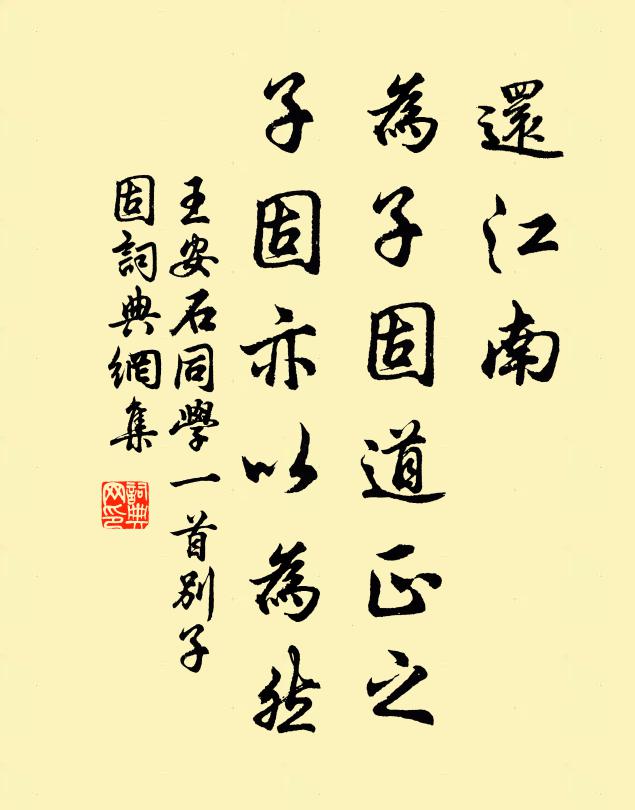 還江南
為子固道正之
子固亦以為然
王安石同學一首別子
固詞典網集
詞典
网印